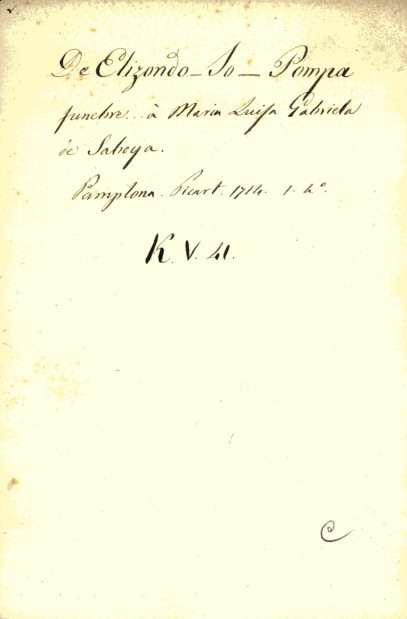 De Elizondo - Jo - Pompa
funebre... à Maria Luisa Gabriela
de Saboya.
Pamplona. Picart. 1714. 1. 4º.
K. V. 41.
C